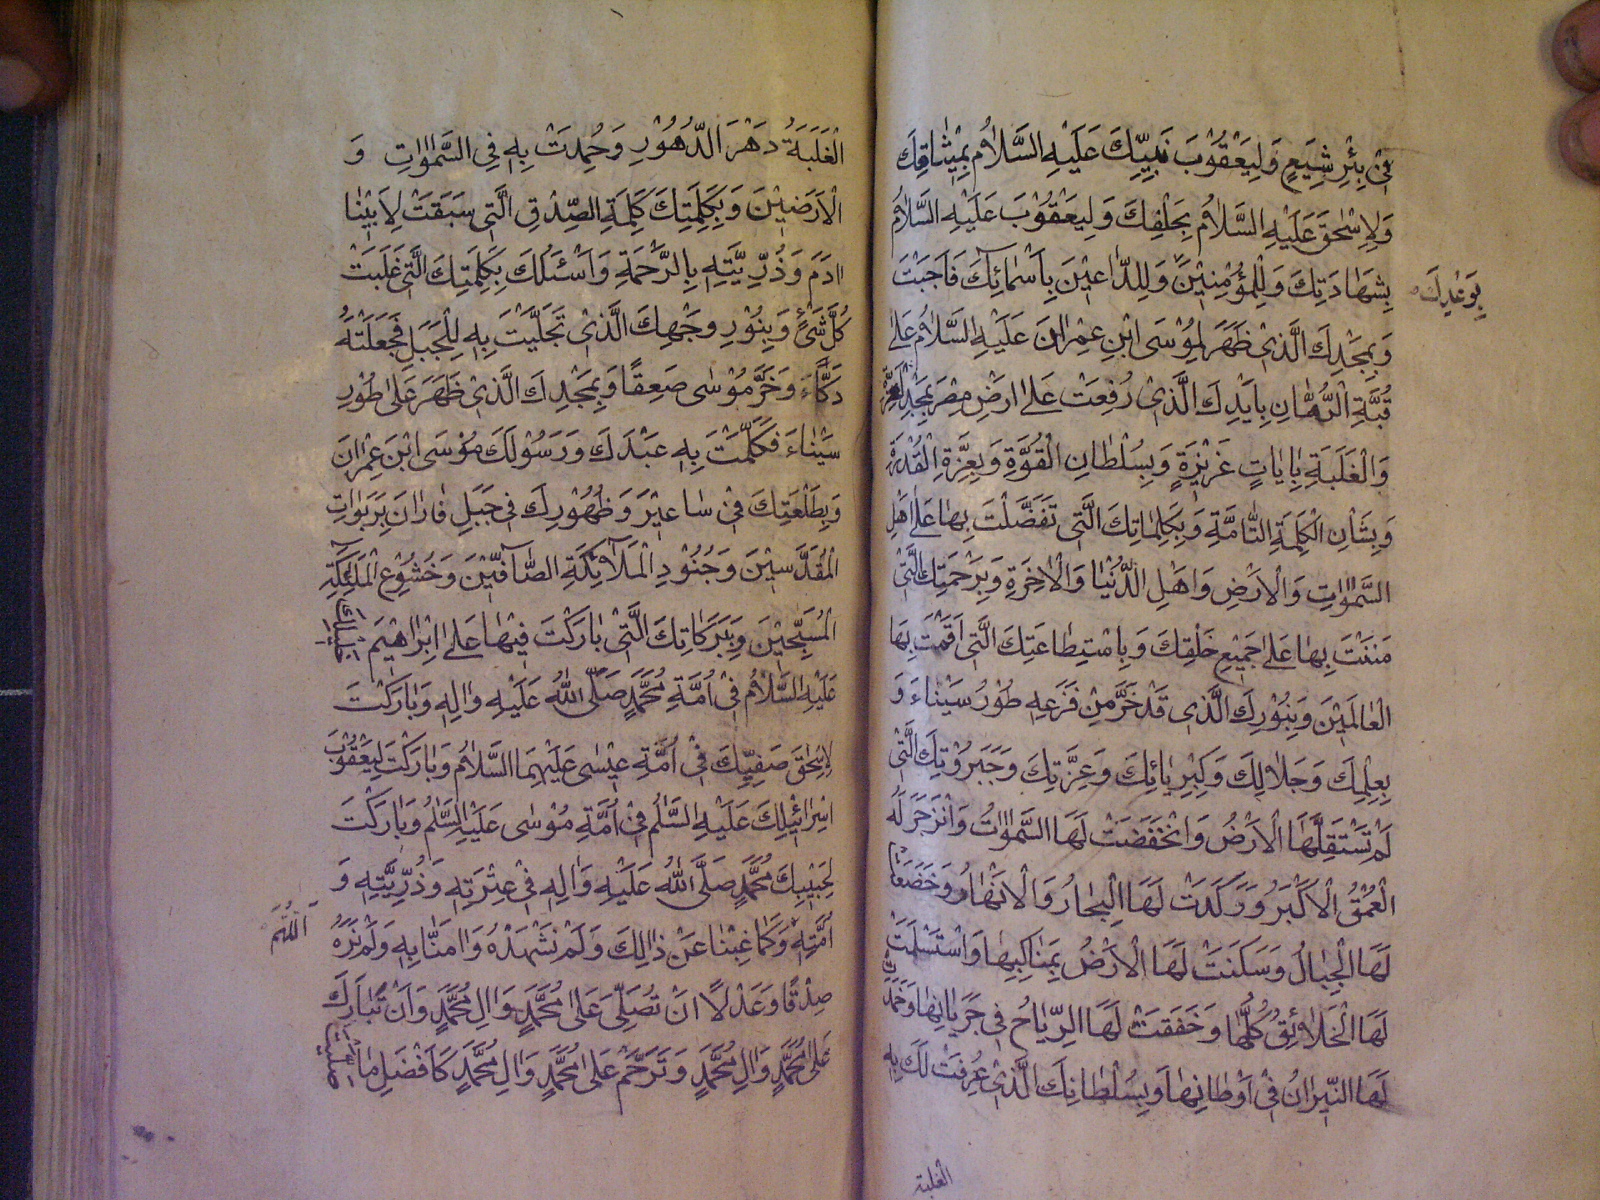 فِيْ بِئْرِ شِيَعٍ وَلِيَعْقُوْبَ نَبِيِّكَ عَلَيْهِ السَّلَامُ بِمِيْثَاقِكَ
وَلِاِسْحٰقَ عَلَيْهِ السَّلَامُ بِحَلْفِكَ وَلِيَعْقُوْبَ عَلَيْهِ السَّلَامُ
بِشَهَادَتِكَ وَلِلْمُؤْمِنِيْنَ وَلِلدَّاعِيْنَ بِاَسْمَآئِكَ فَاَجَبْتَ
بِوَعْدِكَ
وَبِمَجْدِكَ الَّذِيْ ظَهَرَ لِمُوْسَى ابْنِ عِمْرَانَ عَلَيْهِ السَّلَامُ عَلٰى
قُبَّةِ الرُّمَّانِ بِاَيْدِكَ الَّذِيْ رُفِعَتْ عَلٰى اَرْضِ مِصْرَ بِمَجْدِ الْعِزَّةِ
وَالْغَلَبَةِ بِاٰيَاتٍ عَزِيْزَةٍ وَبِسُلْطَانِ الْقُوَّةِ وَبِعِزَّةِ الْقُدْرَةِ
وَبِشَاْنِ الْكَلِمَةِ التَّامَّةِ وَبِكَلِمَاتِكَ الَّتِيْ تَفَضَّلْتَ بِهَا عَلٰى اَهْلِ
السَّمٰوَاتِ وَالْاَرْضِ وَاَهْلِ الدُّنْيَا وَالْاٰخِرَةِ وَبِرَحْمَتِكَ الَّتِيْ
مَنَنْتَ بِهَا عَلٰى جَمِيْعِ خَلْقِكَ وَبِاسْتِطَاعَتِكَ الَّتِيْ اَقَمْتَ بِهَا
الْعَالَمِيْنَ وَبِنُوْرِكَ الَّذِيْ قَدْ خَرَّ مِنْ فَزَعِهِ طُوْرُ سَيْنَاءَ وَ
بِعِلْمِكَ وَجَلَالِكَ وَكِبْرِيَائِكَ وَعِزَّتِكَ وَجَبَرُوْتِكَ الَّتِيْ
لَمْ تَسْتَقِلَّهَا الْاَرْضُ وَانْخَفَضَتْ لَهَا السَّمٰوَاتُ وَانْزَجَرَ لَهَ
الْعُمْقُ الْاَكْبَرُ وَرَكَدَتْ لَهَا الْبِحَارُ وَالْاَنْهَارُ وَخَضَعَتْ
لَهَا الْجِبَالُ وَسَكَنَتْ لَهَا الْاَرْضُ بِمَنَاكِبِهَا وَاسْتَسْلَمَتْ
لَهَا الْخَلَائِقُ كُلُّهَا وَخَفَقَتْ لَهَا الرِّيَاحُ فِيْ جَرَيَانِهَا وَخَمَدَتْ
لَهَا النِّيْرَانُ فِيْ اَوْطَانِهَا وَبِسُلْطَانِكَ الَّذِيْ عُرِفَتْ لَكَ بِهِ
الغلبة
الْغَلَبَةُ دَهْرَ الدُّهُوْرِ وَحُمِدَتْ بِهِ فِي السَّمٰوَاتِ وَ
الْاَرَضِيْنَ وَبِكَلِمَتِكَ كَلِمَةِ الصِّدْقِ الَّتِيْ سَبَقَتْ لِاَبِيْنَا
اٰدَمَ وَذُرِّيَّتِهِ بِالرَّحْمَةِ وَاَسْئَلُكَ بِكَلِمَتِكَ الَّتِيْ غَلَبَتْ
كُلَّ شَيْءٍ وَبِنُوْرِ وَجْهِكَ الَّذِيْ تَجَلَّيْتَ بِهِ لِلْجَبَلِ فَجَعَلْتَهُ
دَكًّاءَ وَخَرَّ مُوْسٰى صَعِقًا وَبِمَجْدِكَ الَّذِيْ ظَهَرَ عَلٰى طُوْرِ
سَيْنَاءَ فَكَلَّمْتَ بِهِ عَبْدَكَ وَرَسُوْلَكَ مُوْسَى ابْنَ عِمْرَانَ
وَبِطَلْعَتِكَ فِيْ سَاعِيْرَ وَظُهُوْرِكَ فِيْ جَبَلِ فَارَانَ بِرَبَوَاتِ
الْمُقَدَّسِيْنَ وَجُنُوْدِ الْمَلَآئِكَةِ الصَّآفِّيْنَ وَخُشُوْعِ الْمَلٰٓئِكَةِ
الْمُسَبِّحِيْنَ وَبِبَرَكَاتِكَ الَّتِيْ بَارَكْتَ فِيْهَا عَلٰى اِبْرَاهِيْمَ خَلِيْلِكَ
عَلَيْهِ السَّلَامُ فِيْ اُمَّةِ مُحَمَّدٍ صَلَّى اللّٰهُ عَلَيْهِ وَاٰلِهِ وَبَارَكْتَ
لِاِسْحٰقَ صَفِيِّكَ فِيْ اُمَّةِ عِيْسٰى عَلَيْهِمَا السَّلَامُ وَبَارَكْتَ لِيَعْقُوْبَ
اِسْرَائِيْلِكَ عَلَيْهِ السَّلٰمُ فِيْ اُمَّةِ مُوْسٰى عَلَيْهِ السَّلٰمُ وَبَارَكْتَ
لِحَبِيْبِكَ مُحَمَّدٍ صَلَّى اللّٰهُ عَلَيْهِ وَاٰلِهِ فِيْ عِتْرَتِهِ وَذُرِّيَّتِهِ وَ
اُمَّتِهِ وَكَمَا غِبْنَا عَنْ ذَالِكَ وَلَمْ نَشْهَدْهُ وَاٰمَنَّا بِهِ وَلَمْ نَرَهُ
اَللّٰهُمَّ
صِدْقًا وَعَدْلًا اَنْ تُصَلِّيَ عَلٰى مُحَمَّدٍ وَاٰلِ مُحَمَّدٍ وَاَنْ تُبَارِكَ
عَلٰى مُحَمَّدٍ وَاٰلِ مُحَمَّدٍ وَتَرَحَّمَ عَلٰى مُحَمَّدٍ وَاٰلِ مُحَمَّدٍ كَاَفْضَلِ مَا صَلَّيْتَ